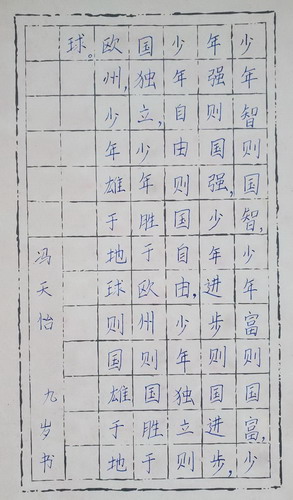 少年智则国智,少年富则国富,少
年强则国强,少年进步则国进步,
少年自由则国自由,少年独立则
国独立,少年胜于欧州则国胜于
欧州,少年雄于地球则国雄于地
球。
冯天怡 九岁书